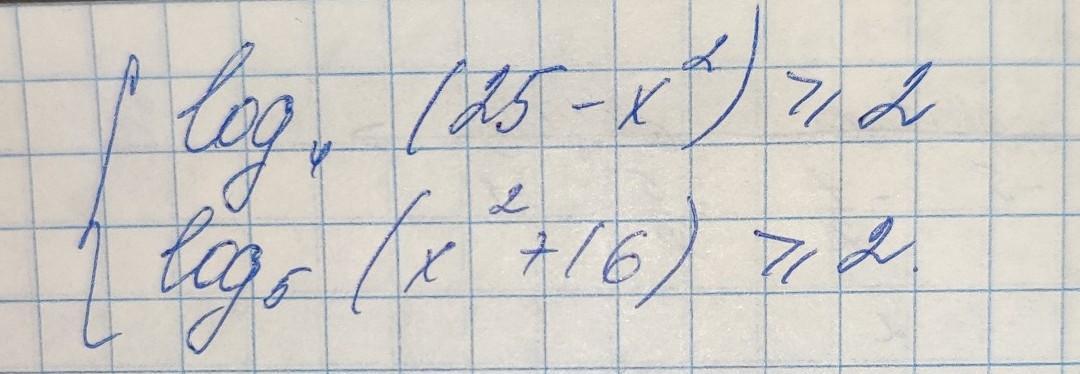 log₄ (25 - x²) ⩾ 2
log₅ (x² + 16) ⩾ 2.